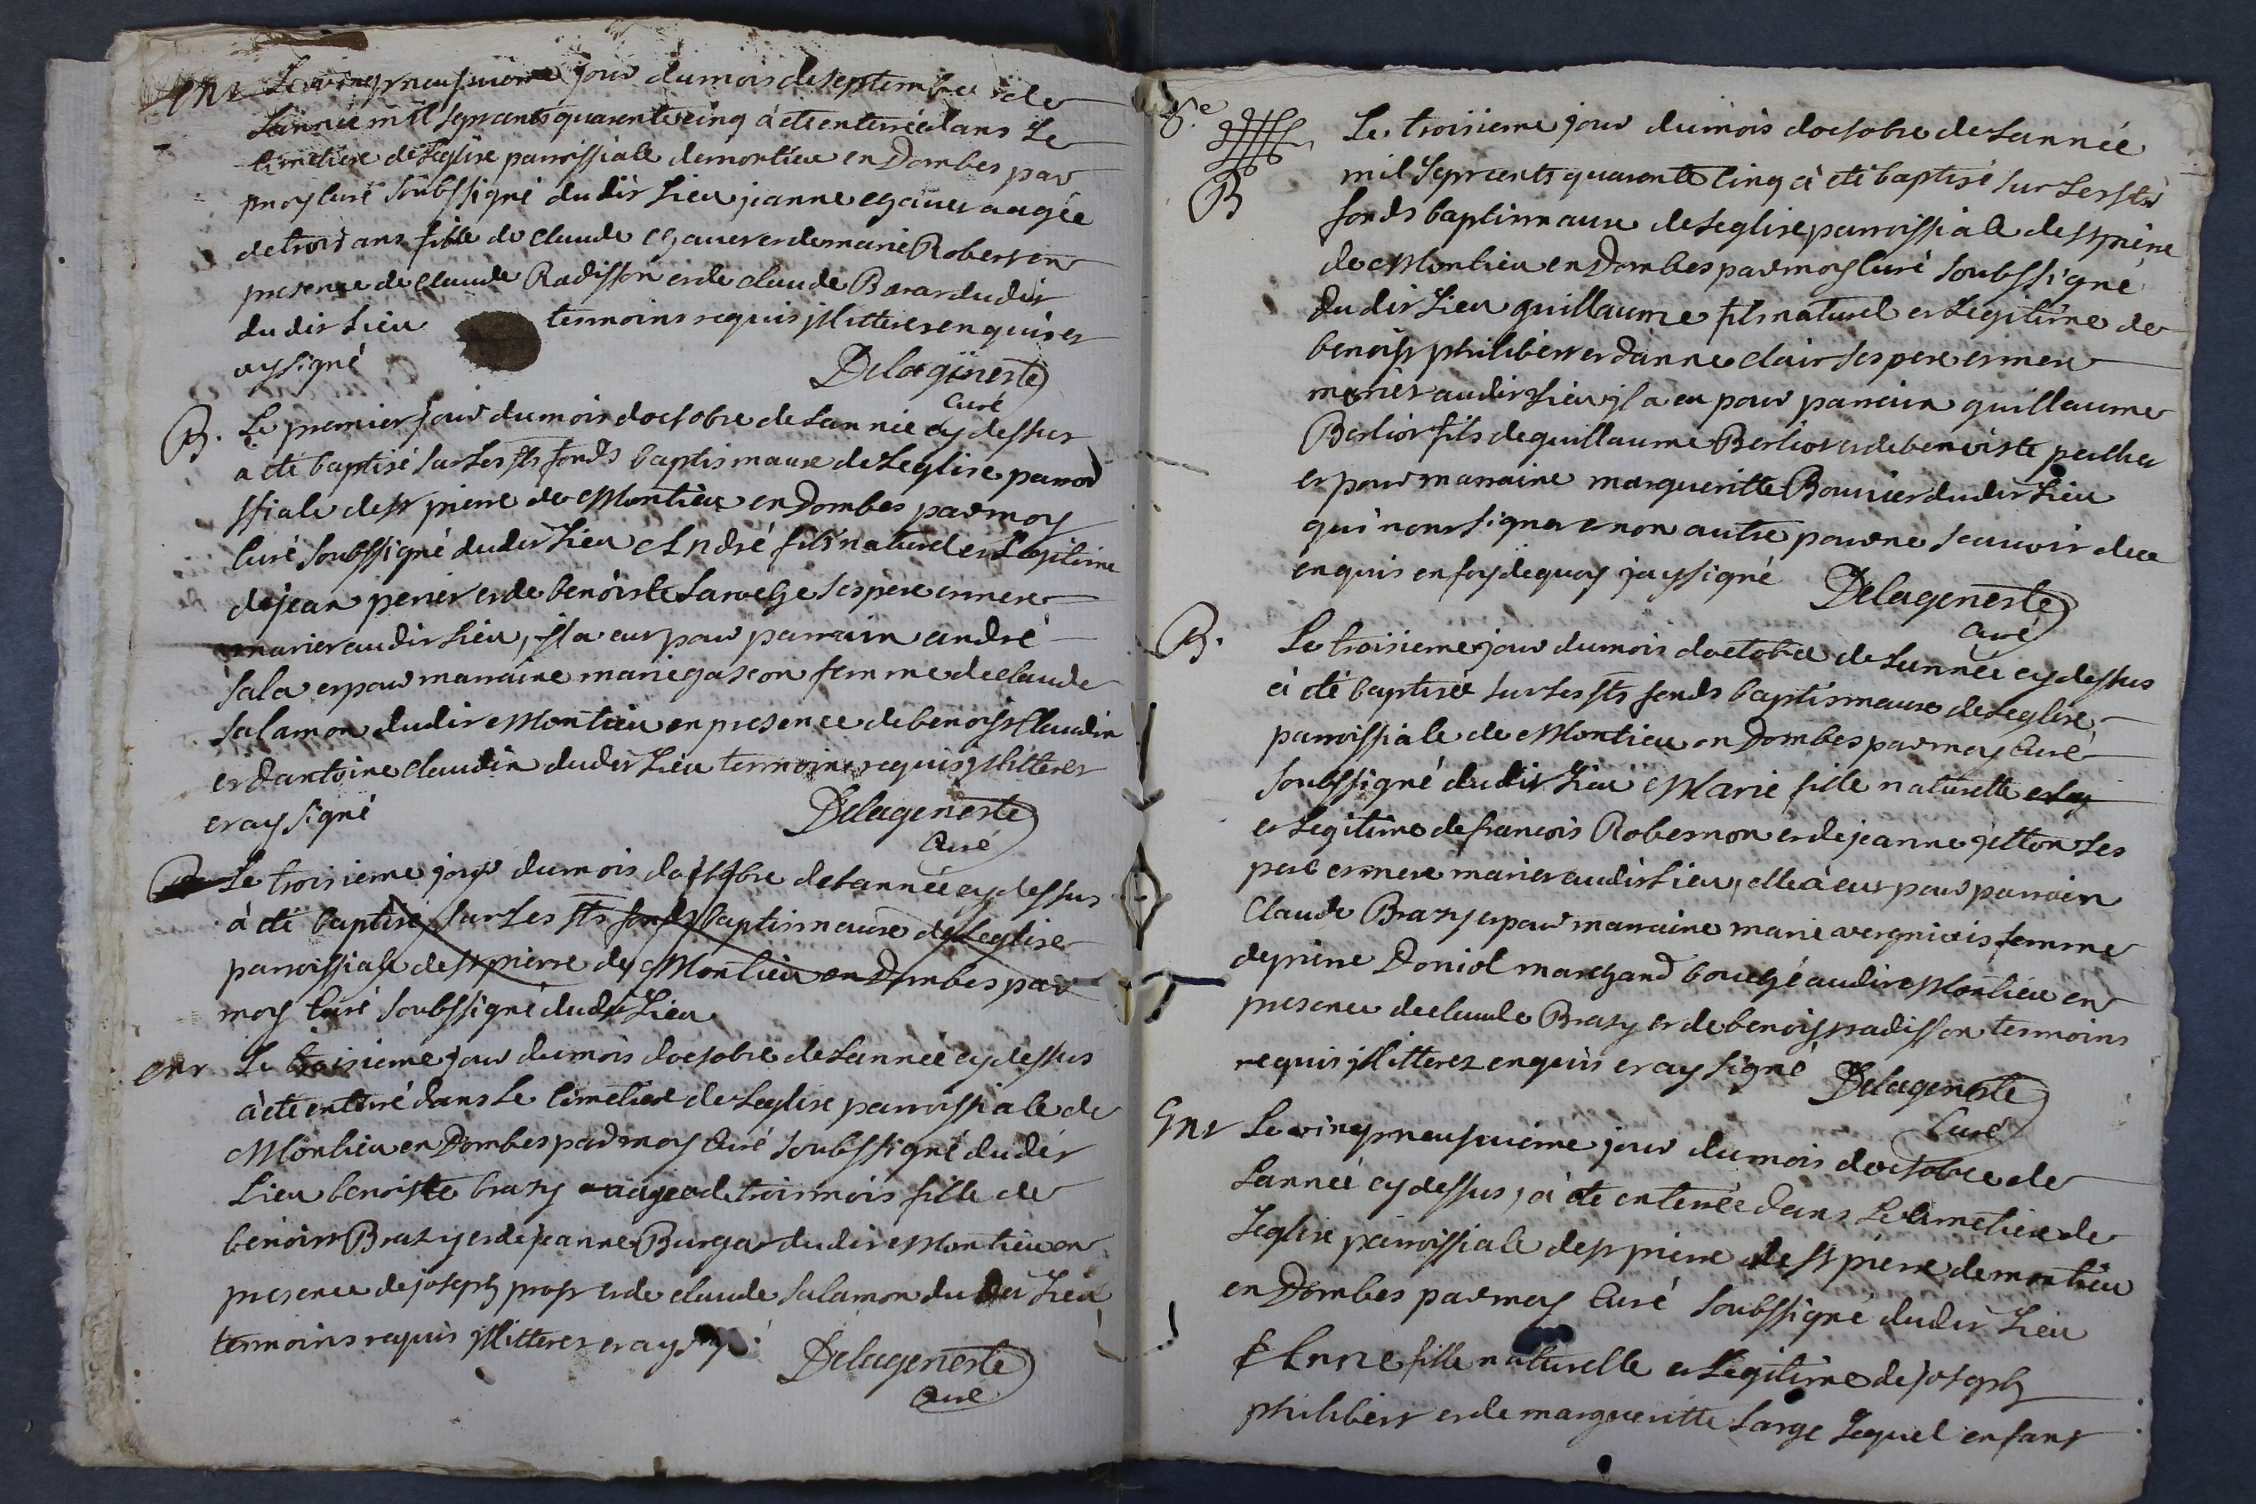 Ent Le vingt neufvieme jour du mois de septembre de
L'année mil sept cents quarente cinq à eté enterrée dans Le
Cimetiere de Leglise parroissiale de montieu en Dombes par
moy Curé soubssigné dudit Lieu jeanne aagée
de trois ans fille de Claude et de marie Robert en
presence de Claude Radisson et de Claude Barar dudit
dudit Lieu temoins requis jllitteres enquis et
ay signé
Delageneste
Curé
B. Le premier jour du mois doctobre de Lannée cy dessus
a eté baptisé sur Les sts fonds baptismaux de Leglise parroi
ssiale de st pierre de Montieu en Dombes par moy
Curé soubssigné dudit Lieu André fils naturel et Legitime
de jean perier et de benoiste Laroche ses pere et mere
mariez audit Lieu, jl a eut pour parrain andré
sala et pour marraine marie gascon femme de claude
salamon dudit Montieu en presence de benoist Claudin
et dantoine claudin dudit Lieu temoins requis jllitteres
et ay signé
Delageneste
Curé
B Le troisieme jour du mois doctobre de Lannée cy dessus
à eté baptisé sur Les sts fonds baptismaux de Leglise
parroissiale de st pierre de Montieu en Dombes par
moy Curé soubssigné dudit Lieu
ent Le troisieme jour du mois doctobre de Lannée cy dessus
à eté enterré dans Le Cimetiere de Leglise parroissiale de
Montieu en Dombes par moy Curé soubssigné dudit
Lieu benoiste brazy aagée de trois mois fille de
benoist Brazy et de jeanne Burga dudit Montieu en
presence de joseph prost et de claude salamon dudit Lieu
temoins requis jllitteres et ay signé
Delageneste
Curé
5.e
B Le troisieme jour du mois doctobre de Lannée
mil sept cents quarente cinq à eté baptisé sur Les sts
fonds baptismaux de Leglise parroissiale de st pierre
de Montieu en Dombes par moy Curé soubssigné
dudit Lieu guillaume fils naturel et Legitime de
benoist philibert et danne clair ses pere et mere
mariés audit Lieu jl a eu pour parrain guillaume
Berliot fils de guillaume Berliot et de benoiste
et pour marraine margueritte Bouvier dudit Lieu
qui nont signer non autre pour ne scauoir de ce
enquis en foy de quoy jay signé
Delageneste
Curé
B. Le troisieme jour du mois doctobre de Lannée cy dessus
à eté baptisée sur Les sts fonds baptismaux de Leglise
parroissiale de Montieu en Dombes par moy Curé
soubssigné dudit Lieu Marie fille naturelle et Leg
et Legitime de francois Robernon et de jeanne jetton ses
pere et mere mariez audit Lieu, elle à eut pour parrain
Claude Brazy et pour marraine marie vergniais femme
de pierre Doniol marchand bouché audit Montieu en
presence de claude Brazy et de benoist radisson temoins
requis jllitterez enquis et ay signé
Delageneste
Curé
Ent Le vingt neufvieme jour du mois doctobre de
Lannée cy dessus, à eté enterrée dans Le Cimetiere de
Leglise parroissiale de st pierre de st pierre de montieu
en Dombes par moy Curé soubssigné dudit Lieu
Anne fille naturelle et Legitime de joseph
philibert et de margueritte Large Lequel enfant